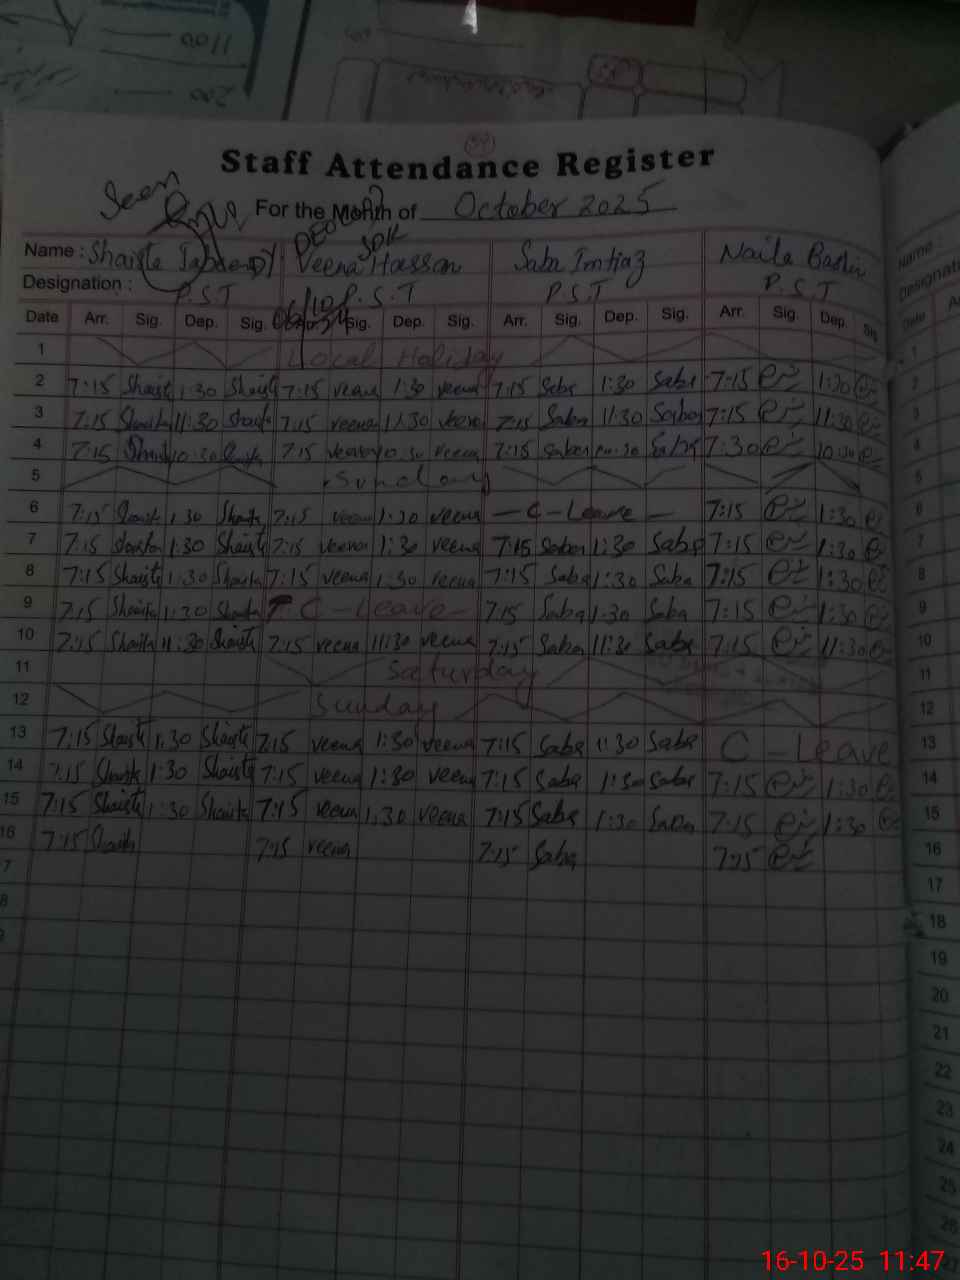 1100
200
Staff Attendance Register
Seen
For the Month of October 2025
Name : Shaista Veena Hassan Saba Imtiaz Naila Bashir
Designation : P.S.T P.S.T P.S.T P.S.T
Date Arr. Sig. Dep. Sig. Sig. Dep. Sig. Arr. Sig. Dep. Sig. Arr. Sig. Dep. Sig
1 Local Holiday
2 7:15 Shaist 1:30 Shaist 7:15 veena 1:30 veena 7:15 Saba 1:30 Saba 7:15 1:30
3 7:15 Shaista 11:30 Shaist 7:15 veena 11:30 veena 7:15 Saba 11:30 Saba 7:15 11:30
4 7:15 Shaist 10:30 7:15 veena 10:30 veena 7:15 Saba 10:30 Saba 7:30 10:30
5 Sunday
6 7:15 1:30 Shaista 7:15 veena 1:30 veena - C - Leave - 7:15 1:30
7 7:15 Shaista 1:30 Shaista 7:15 veena 1:30 veena 7:15 Saba 1:30 Saba 7:15 1:30
8 7:15 Shaista 1:30 Shaista 7:15 veena 1:30 veena 7:15 Saba 1:30 Saba 7:15 1:30
9 7:15 Shaista 1:30 Shaista C - Leave - 7:15 Saba 1:30 Saba 7:15 1:30
10 7:15 Shaista 11:30 Shaista 7:15 veena 11:30 veena 7:15 Saba 11:30 Saba 7:15 11:30
11 Saturday
12 Sunday
13 7:15 Shaista 1:30 Shaista 7:15 veena 1:30 veena 7:15 Saba 1:30 Saba C - Leave
14 7:15 Shaista 1:30 Shaista 7:15 veena 1:30 veena 7:15 Saba 1:30 Saba 7:15 1:30
15 7:15 Shaista 1:30 Shaista 7:15 veena 1:30 veena 7:15 Saba 1:30 Saba 7:15 1:30
16 7:15 Shaista 7:15 veena 7:15 Saba 7:15
7
8
9
Name :
Designati
Date
1
2
3
4
5
6
7
8
9
10
11
12
13
14
15
16
17
18
19
20
21
22
23
24
25
26
16-10-25 11:47